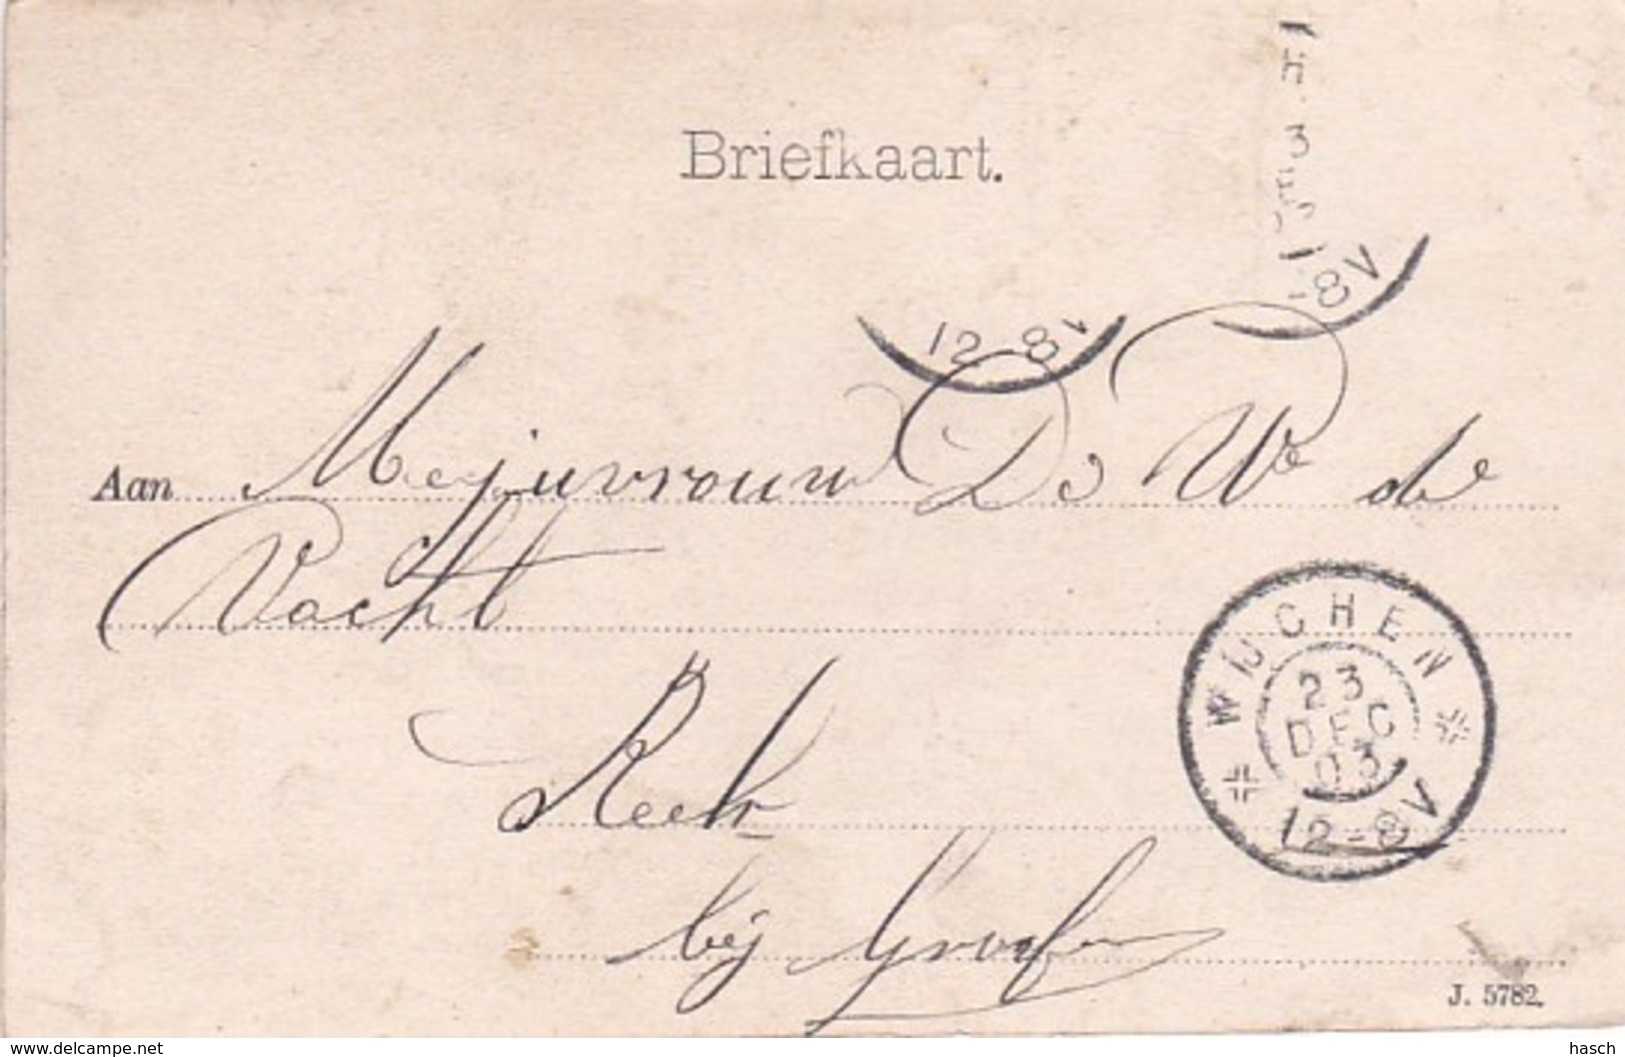 Briefkaart.
12-8V
-8V
Aan Mejuvrouw D. W. de
Vocht
Reek
bij Graaf
WIJCHEN
23
DEC
03
12-8V
J. 5782.
© www.delcampe.net
hasch